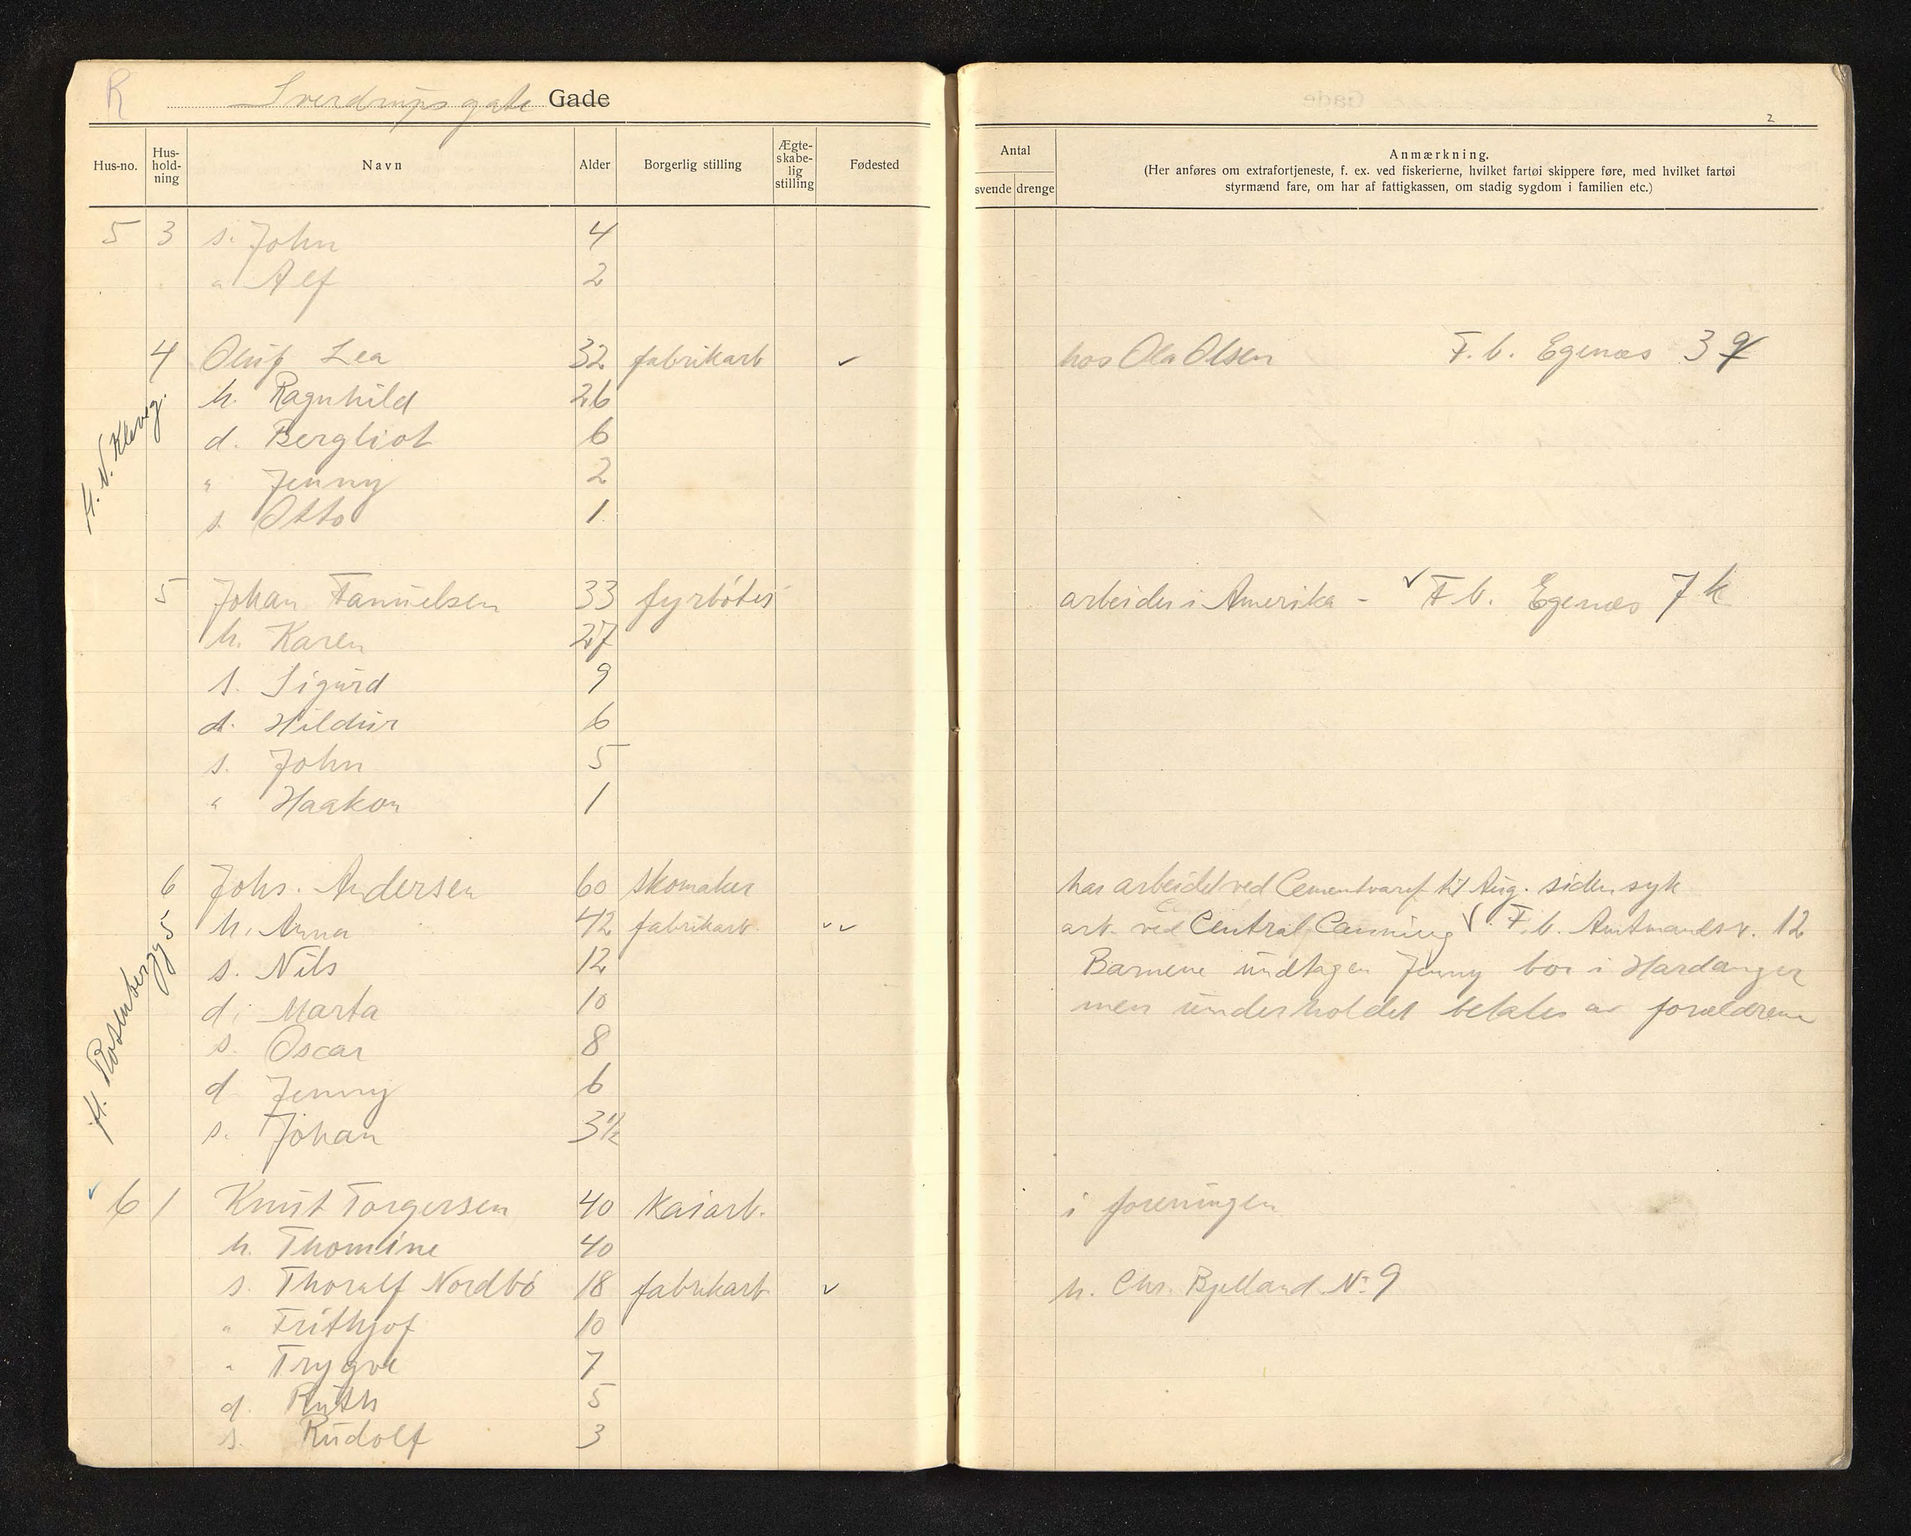 R Sverdrupsgate Gade
Hus-no. Hus-hold-ning Navn Alder Borgerlig stilling Ægte-skabe-lig stilling Fødested
5 3 s. John 4
" Alf 2
4 Oluf Lea 32 fabrikarb ✓
h. Ragnhild 26
d. Bergliot 6
" Jenny 2
s. Otto 1
H. N. Klevig.
5 Johan Fanuelsen 33 fyrböter
h. Karen 27
s. Sigurd 9
d. Hildur 6
s. John 5
" Haakon 1
6 Johs. Andersen 60 skomaker
h. Anna 42 fabrikarb. ✓✓
s. Nils 12
d. Marta 10
s. Oscar 8
d Jenny 6
s. Johan 3½
H. Rosenbergg 5
✓ 6 1 Knut Torgersen 40 kaiarb.
h. Thomine 40
s. Thoralf Nordbö 18 fabrikarb ✓
" Frithjof 10
" Trygve 7
d. Ruth 5
s. Rudolf 3
2
Antal
svende drenge
Anmærkning.
(Her anføres om extrafortjeneste, f. ex. ved fiskerierne, hvilket fartøi skippere føre, med hvilket fartøi
styrmænd fare, om har af fattigkassen, om stadig sygdom i familien etc.)
hos Ola Olsen F. b. Egenæs 3
arbeider i Amerika - ✓ F b. Egenæs 7 k
har arbeidet ved Cementvaref til Aug. siden syk
arb. ved Central Canning ✓ F. b. Amtmandsv. 12
Barnene undtagen Jenny bor i Hardanger
men underholdet betales av forældrene
i foreningen
h. Chr. Bjelland No 9